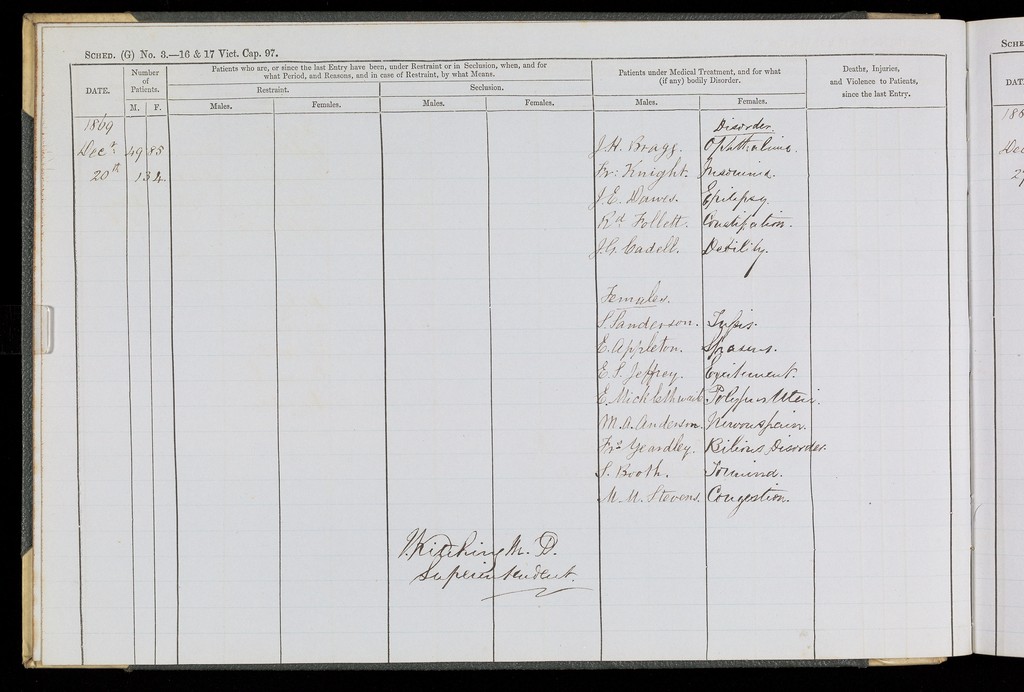 SCHED. (G) No. 3.—16 & 17 Vict. Cap. 97.
DATE.
Number of Patients.
M. F.
Patients who are, or since the last Entry have been, under Restraint or in Seclusion, when, and for what Period, and Reasons, and in case of Restraint, by what Means.
Restraint. Seclusion.
Males. Females. Males. Females.
Patients under Medical Treatment, and for what (if any) bodily Disorder.
Males. Females.
Deaths, Injuries, and Violence to Patients, since the last Entry.
1869 Disorder.
Decr. 49 85 J. H. Bragg. Ophthalmia.
20th 134 Fr: Knight. Insomnia.
J. E. Dawes. Epilepsy.
Rd Follett. Constipation.
J. G. Cadell. Debility.
Females.
S. Sanderson.
E. Appleton. Spasms.
E. S. Jeffrey. Excitement.
E. Micklethwait Polypus Uteri.
M. A. Anderson. Nervous pain.
Frs Yeardley. Bilious Disorder.
S. Booth.
M. M. Stevens. Congestion.
J. Kitching M. D.
Superintendent.
SCHE
DAT
186
Dec
27